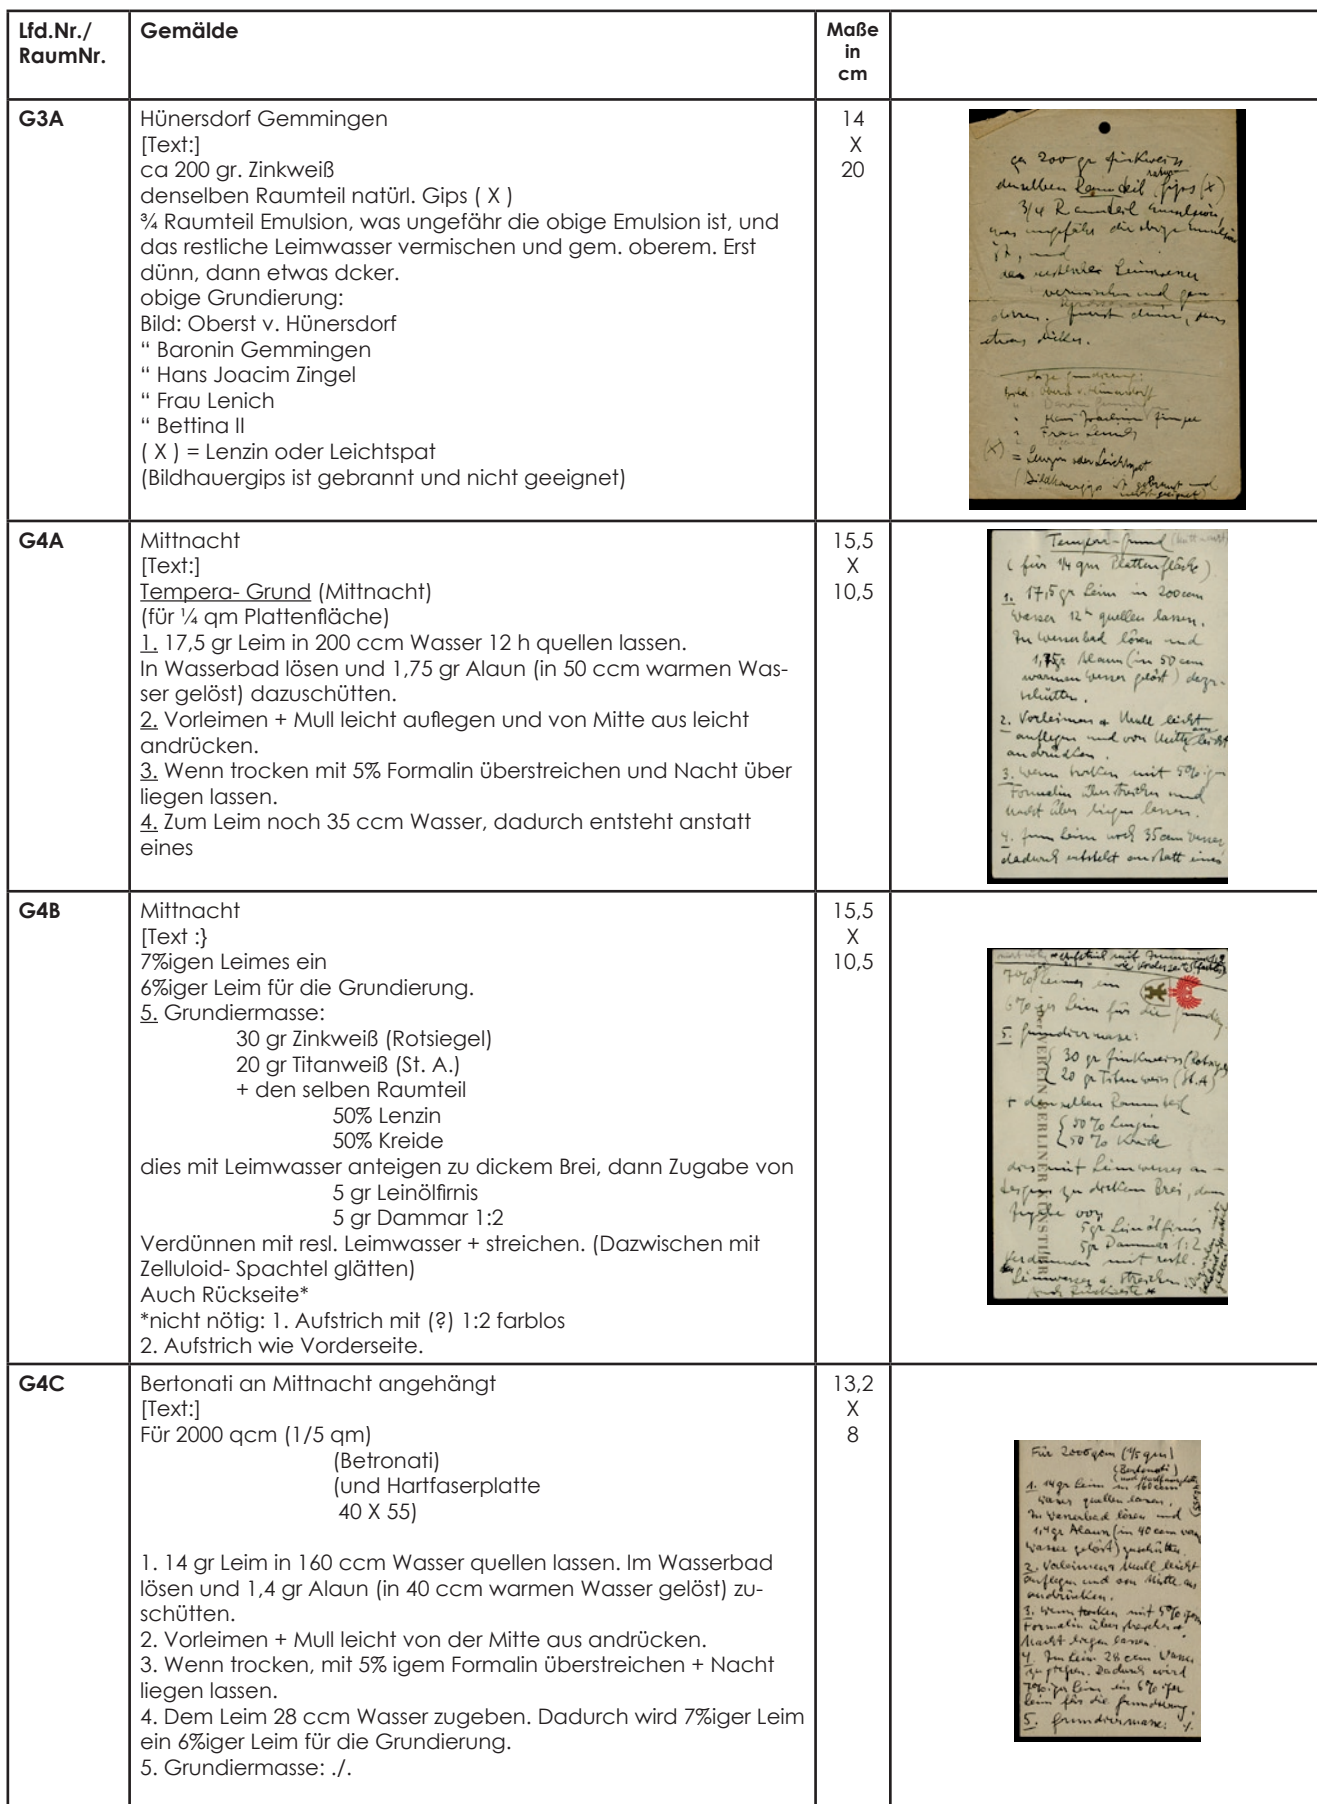 Lfd.Nr./
RaumNr.
Gemälde
Maße
in
cm
G3A
Hünersdorf Gemmingen
[Text:]
ca 200 gr. Zinkweiß
denselben Raumteil natürl. Gips ( X )
¾ Raumteil Emulsion, was ungefähr die obige Emulsion ist, und
das restliche Leimwasser vermischen und gem. oberem. Erst
dünn, dann etwas dcker.
obige Grundierung:
Bild: Oberst v. Hünersdorf
“ Baronin Gemmingen
“ Hans Joacim Zingel
“ Frau Lenich
“ Bettina II
( X ) = Lenzin oder Leichtspat
(Bildhauergips ist gebrannt und nicht geeignet)
14
X
20
ca 200 gr Zinkweiss
denselben Raumteil Gips (X)
3/4 Raumteil Emulsion,
was ungefähr die obige Emulsion
ist, und
vermischen und
etwas dicker.
obige Grundierung:
Bild: Oberst v. Hünersdorff
Hans Joachim
(X) = Lenzin oder Leichtspat
(Bildhauergips ist gebrannt und
nicht geeignet)
G4A
Mittnacht
[Text:]
Tempera- Grund (Mittnacht)
(für ¼ qm Plattenfläche)
1. 17,5 gr Leim in 200 ccm Wasser 12 h quellen lassen.
In Wasserbad lösen und 1,75 gr Alaun (in 50 ccm warmen Was-
ser gelöst) dazuschütten.
2. Vorleimen + Mull leicht auflegen und von Mitte aus leicht
andrücken.
3. Wenn trocken mit 5% Formalin überstreichen und Nacht über
liegen lassen.
4. Zum Leim noch 35 ccm Wasser, dadurch entsteht anstatt
eines
15,5
X
10,5
Tempera-Grund (Mittnacht)
(für 1/4 qm Plattenfläche)
1. 17,5 gr Leim in 200 ccm
Wasser 12 h quellen lassen.
In Wasserbad lösen und
1,75 gr Alaun (in 50 ccm
warmen Wasser gelöst) dazu-
schütten.
2. Vorleimen + Mull leicht
auflegen und von Mitte aus leicht
andrücken.
3. Wenn trocken mit 5%igem
Formalin überstreichen und
Nacht über liegen lassen.
4. Zum Leim noch 35 ccm Wasser,
dadurch entsteht anstatt eines
G4B
Mittnacht
[Text :}
7%igen Leimes ein
6%iger Leim für die Grundierung.
5. Grundiermasse:
30 gr Zinkweiß (Rotsiegel)
20 gr Titanweiß (St. A.)
+ den selben Raumteil
50% Lenzin
50% Kreide
dies mit Leimwasser anteigen zu dickem Brei, dann Zugabe von
5 gr Leinölfirnis
5 gr Dammar 1:2
Verdünnen mit resl. Leimwasser + streichen. (Dazwischen mit
Zelluloid- Spachtel glätten)
Auch Rückseite*
*nicht nötig: 1. Aufstrich mit (?) 1:2 farblos
2. Aufstrich wie Vorderseite.
15,5
X
10,5
7%igen Leimes ein
6%iger Leim für die
5. Grundiermasse:
30 gr Zinkweiss (Rotsiegel)
20 gr Titanweiss (St.A)
+ denselben Raumteil
50% Lenzin
50% Kreide
dies mit Leimwasser an-
teigen zu dickem Brei, dann
Zugabe von
5 gr Leinölfirnis
5 gr Dammar 1:2
Verdünnen mit restl.
Leimwasser + streichen
Auch Rückseite *
VEREIN BERLINER KÜNSTLER
G4C
Bertonati an Mittnacht angehängt
[Text:]
Für 2000 qcm (1/5 qm)
(Betronati)
(und Hartfaserplatte
40 X 55)
1. 14 gr Leim in 160 ccm Wasser quellen lassen. Im Wasserbad
lösen und 1,4 gr Alaun (in 40 ccm warmen Wasser gelöst) zu-
schütten.
2. Vorleimen + Mull leicht von der Mitte aus andrücken.
3. Wenn trocken, mit 5% igem Formalin überstreichen + Nacht
liegen lassen.
4. Dem Leim 28 ccm Wasser zugeben. Dadurch wird 7%iger Leim
ein 6%iger Leim für die Grundierung.
5. Grundiermasse: ./.
13,2
X
8
Für 2000 qcm (1/5 qm)
(Bertonati)
1. 14 gr Leim in 160 ccm
Wasser quellen lassen.
Im Wasserbad lösen und
1,4 gr Alaun (in 40 ccm
Wasser gelöst) zuschütten.
2. Vorleimen + Mull leicht
auflegen und von Mitte aus
andrücken.
3. Wenn trocken mit 5%igem
Formalin überstreichen +
Nacht liegen lassen.
4. Zum Leim 28 ccm Wasser
zugeben. Dadurch wird
7%iger Leim ein 6%iger
Leim für die Grundierung.
5. Grundiermasse: ./.